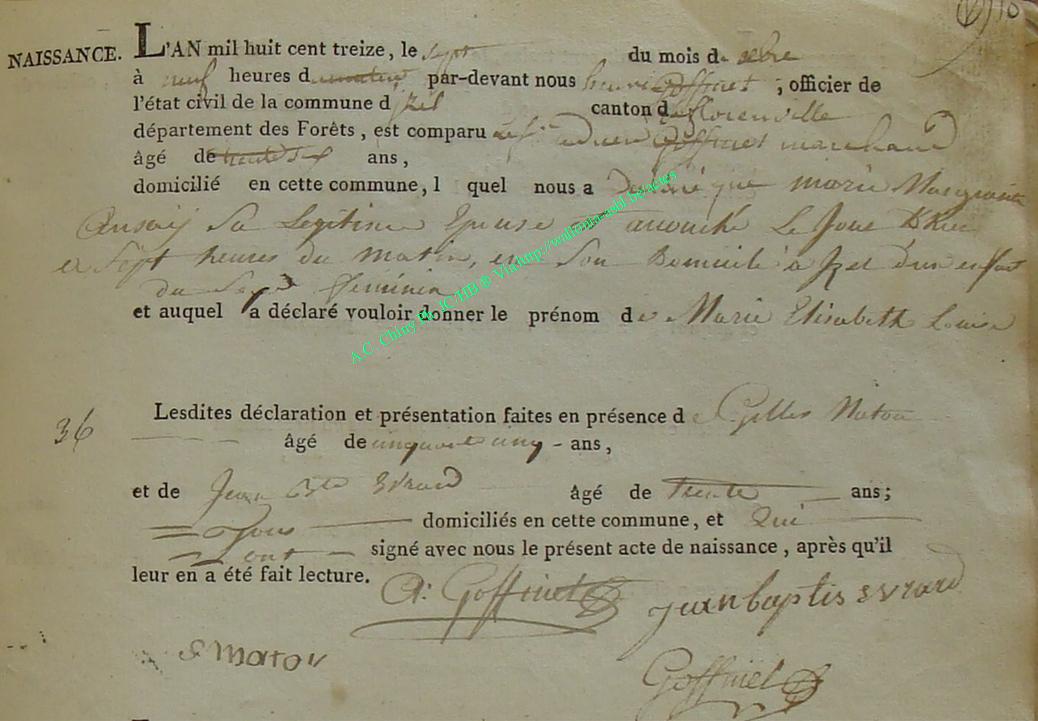 NAISSANCE. L'AN mil huit cent treize, le sept du mois d xbre
à neuf heures d matin par-devant nous henri Goffinet ; officier de
l'état civil de la commune d jzel canton de florenville
département des Forêts, est comparu Goffinet marchand
âgé de trente six ans,
domicilié en cette commune, l quel nous a Déclaré que marie Marguerite
Ansay Sa Legitime Epouse accouché Le Jour D'hier
a Sept heures du matin, en Son Domicile à Jzel d'un enfant
du Sexe féminin
et auquel a déclaré vouloir donner le prénom de Marie Elisabeth Louise
36
Lesdites déclaration et présentation faites en présence de Gilles Maton
âgé de cinquante cinq ans,
et de Jean Bte Evrard âgé de trente ans;
Tous domiciliés en cette commune, et Qui
ont signé avec nous le présent acte de naissance, après qu'il
leur en a été fait lecture.
A: Goffinet
jean baptis evrard
G maton
Goffinet
A.C. Chiny Ph. JC HB ® Via http://wallonia-asbl.be/actes